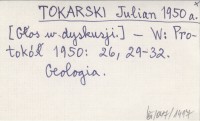 TOKARSKI Julian 1950 a.
[Głos w dyskusji.] – W: Pro-
tokół 1950: 26, 29-32.
Geologia.